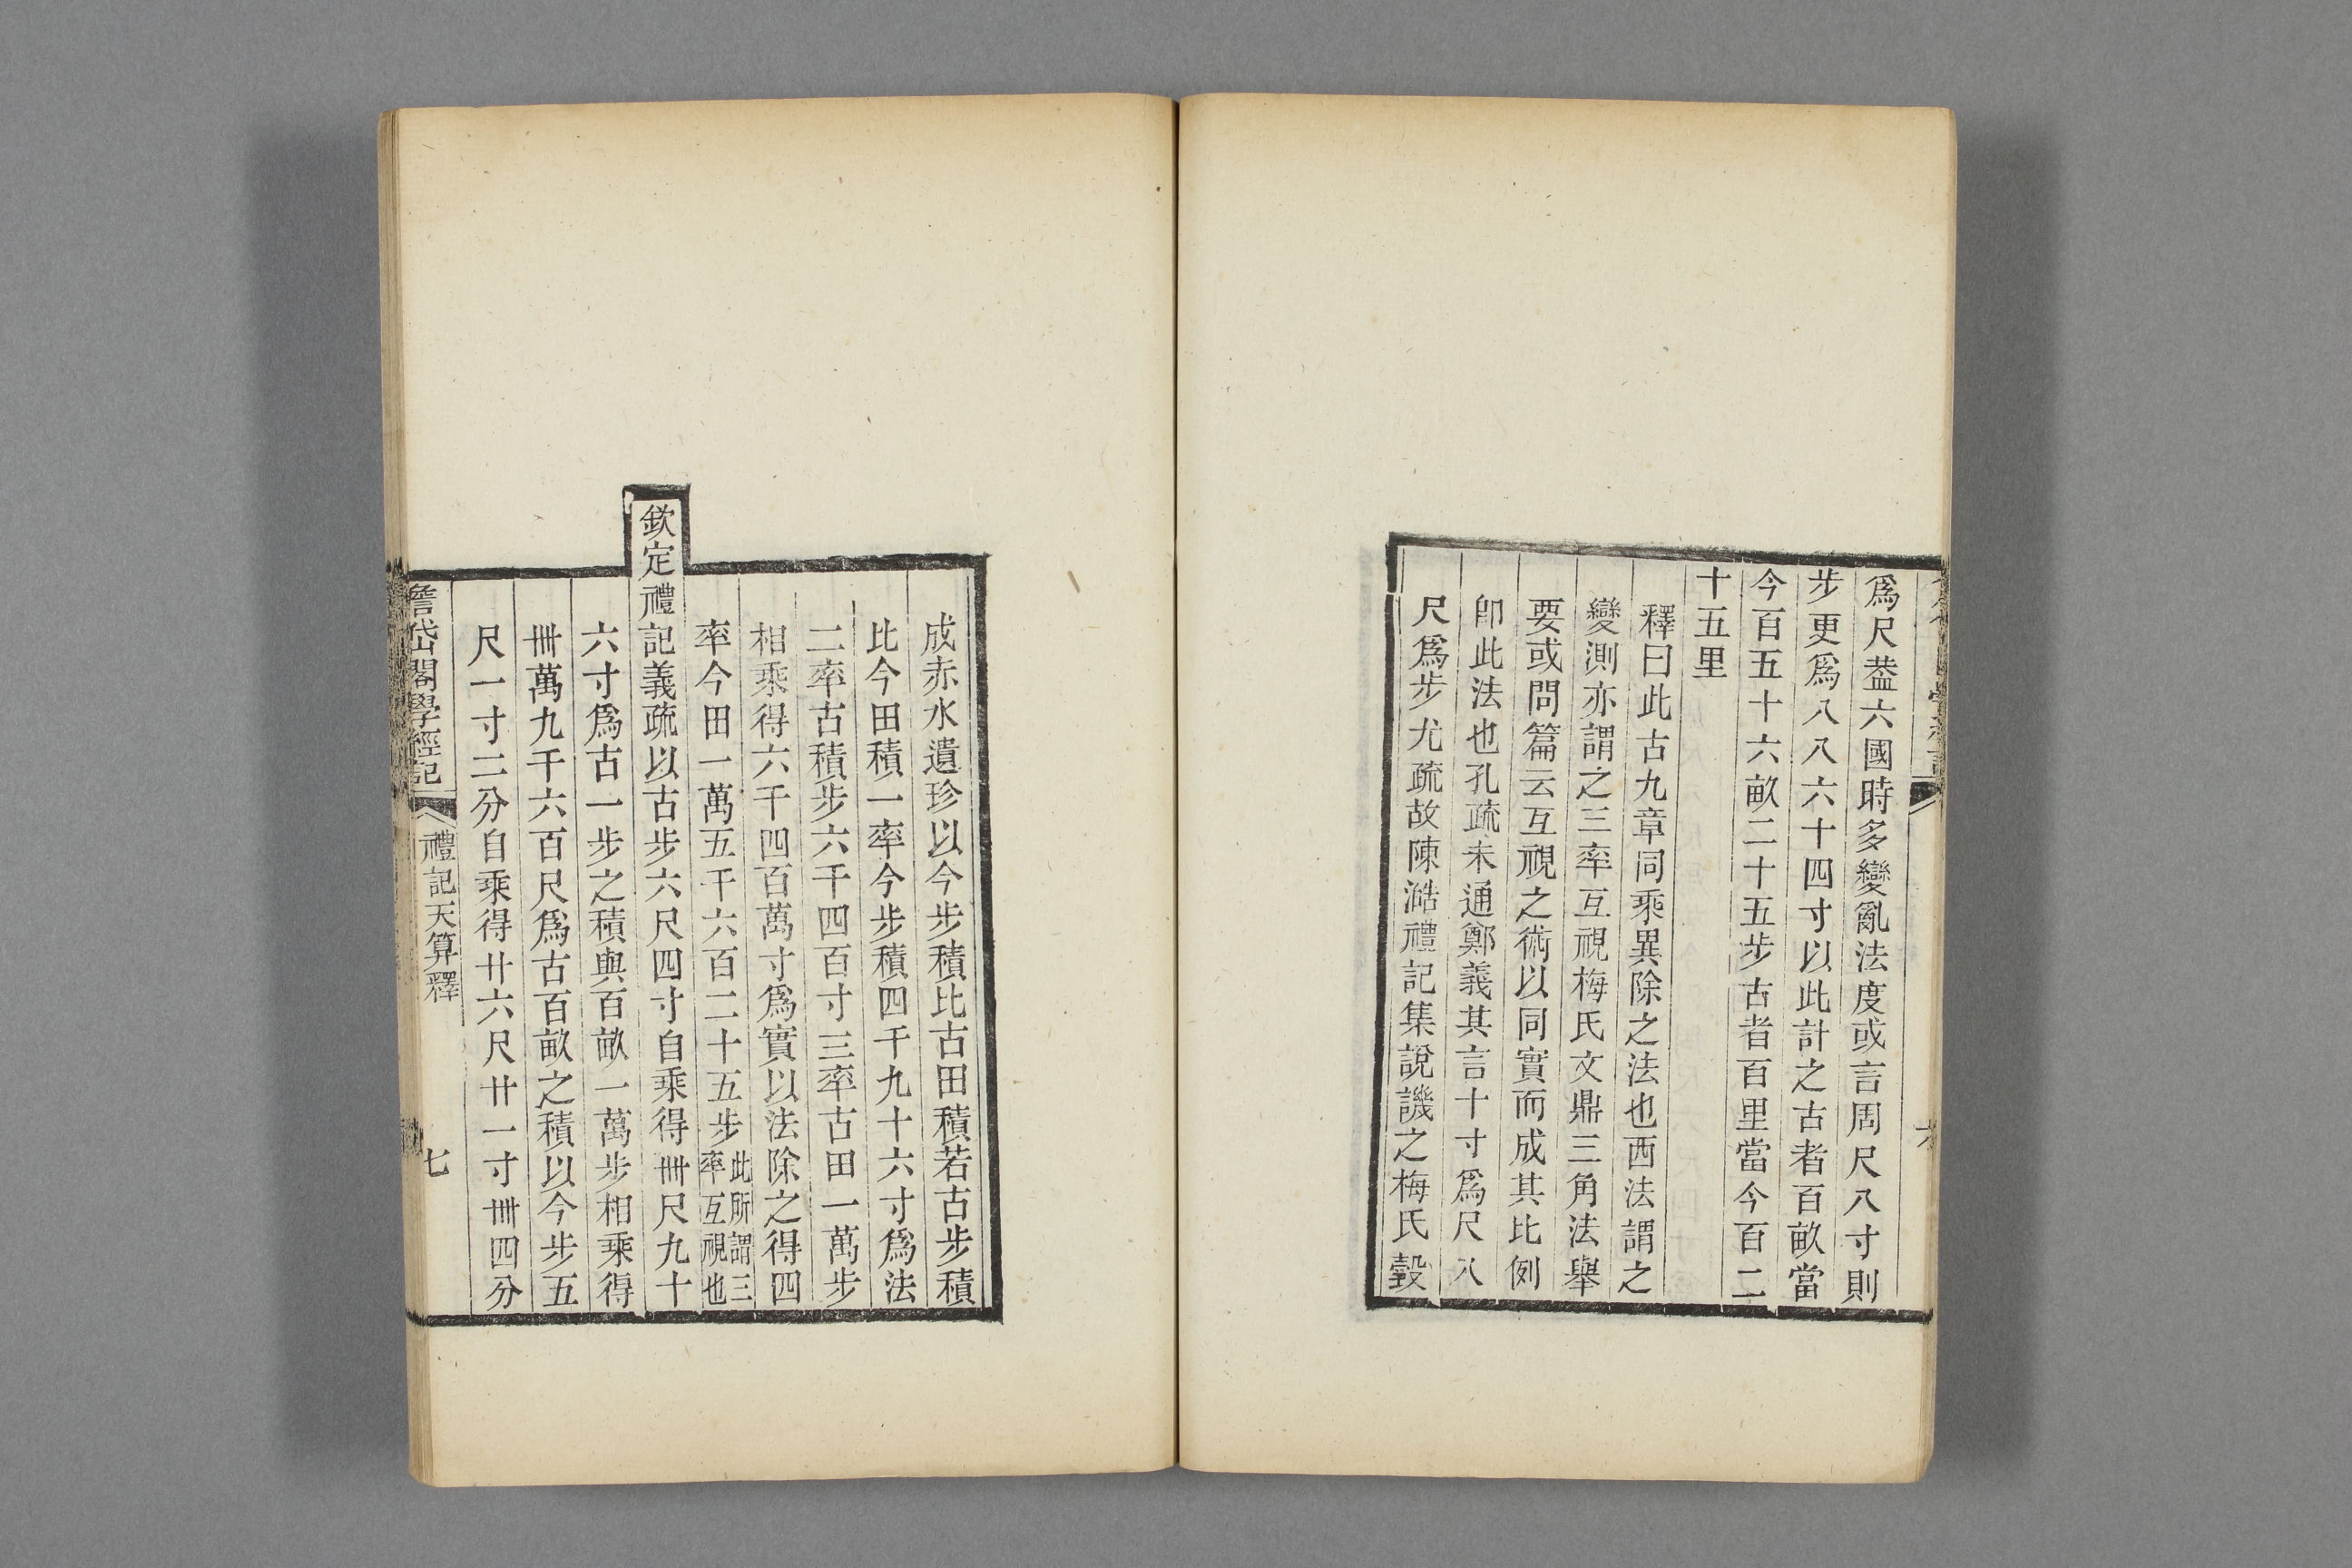 爲尺葢六國時多變亂法度或言周尺八寸則
步更爲八八六十四寸以此計之古者百畝當
今百五十六畝二十五步古者百里當今百二
十五里
釋曰此古九章同乘異除之法也西法謂之
變測亦謂之三率互視梅氏文鼎三角法舉
要或問篇云互視之術以同實而成其比例
卽此法也孔疏未通鄭義其言十寸爲尺八
尺爲步尤疏故陳澔禮記集說譏之梅氏瑴
成赤水遺珍以今步積比古田積若古步積
比今田積一率今步積四千九十六寸爲法
二率古積步六千四百寸三率古田一萬步
相乘得六千四百萬寸爲實以法除之得四
率今田一萬五千六百二十五步此所謂三率互視也
欽定禮記義疏以古步六尺四寸自乘得卌尺九十
六寸爲古一步之積與百畝一萬步相乘得
卌萬九千六百尺爲古百畝之積以今步五
尺一寸二分自乘得廿六尺廿一寸卌四分
詹岱閣學經記
禮記天算釋
七